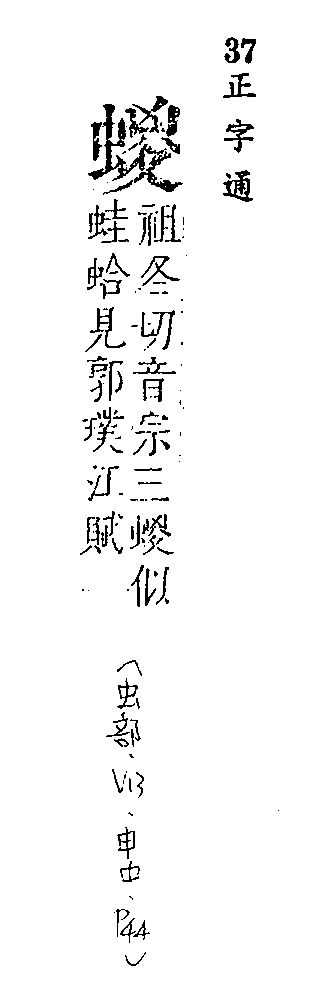 37正字通
蝬
祖冬切音宗三蝬似
蛙蛤見郭璞江賦
(虫部、V13、申中、P44)